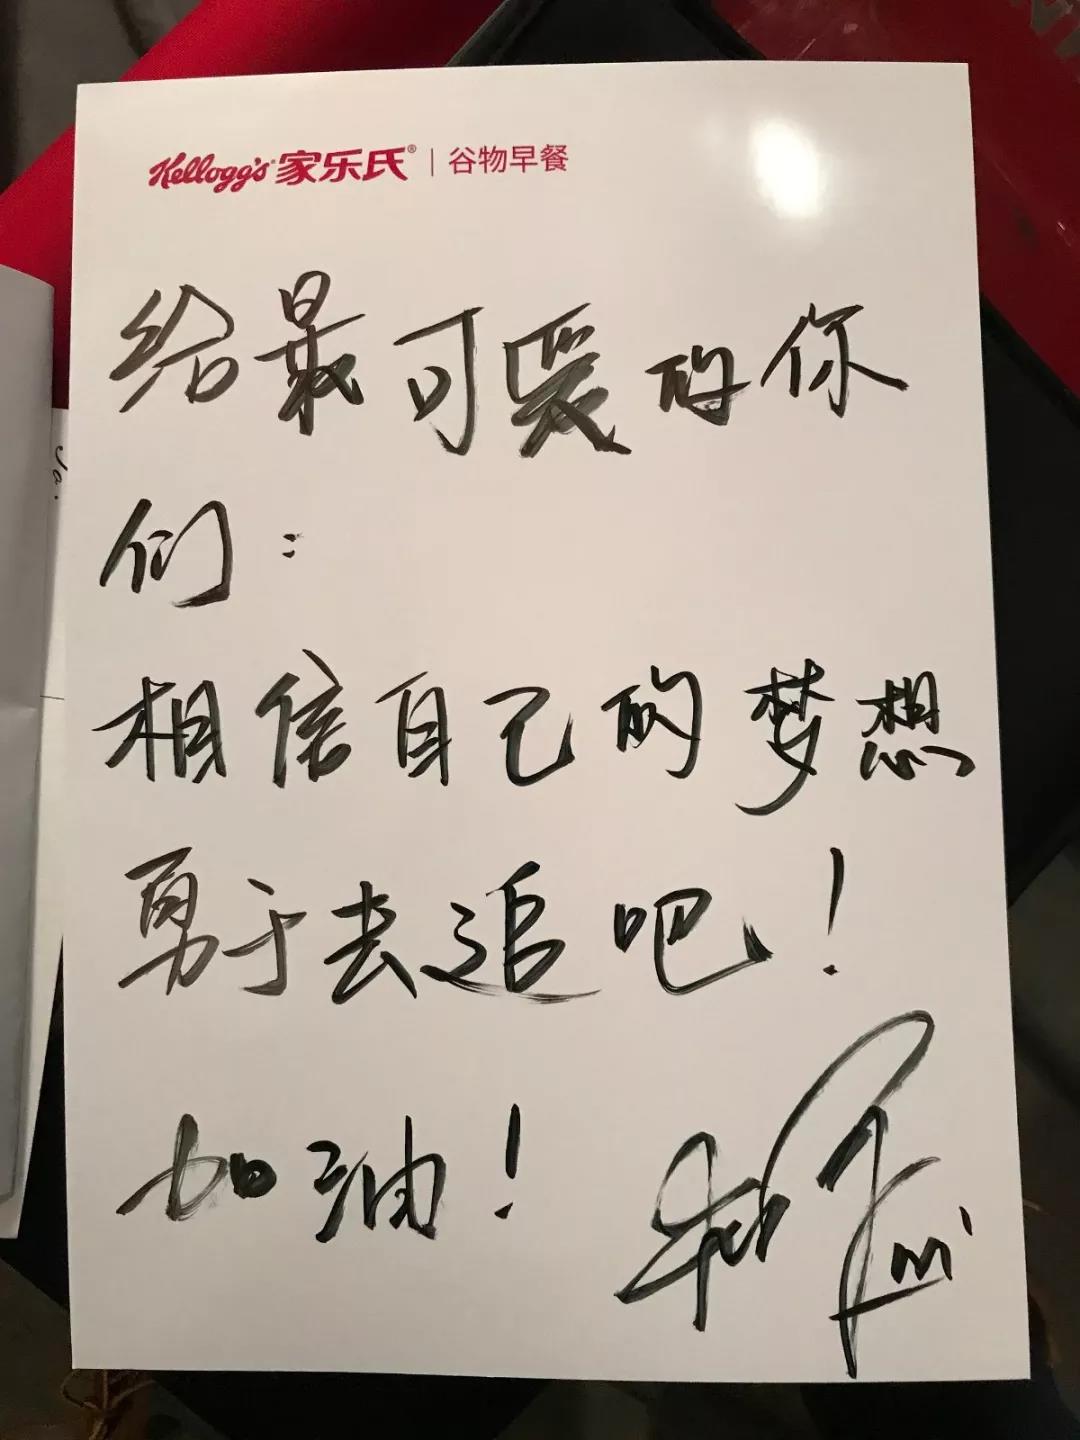 Kellogg's 家乐氏® | 谷物早餐
给最可爱的你
们：
相信自己的梦想
勇于去追吧！
加油！